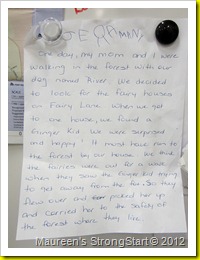 One day, my mom and I were
walking in the forest with our
dog named River. We decided
to look for the fairy houses
on Fairy Lane. When we got
to one house, we found a
Ginger Kid. We were surprised
and happy! It must have run to
the forest by our house. We
the fairies were out for a
when they saw the Ginger Kid trying
to get away from the fox. So they
flew over and picked her up
and carried her to the safety of
the forest where they live.
Maureen's StrongStart © 2012